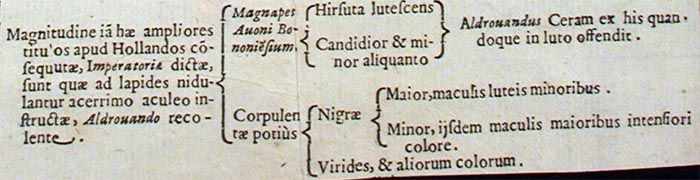 Magnitudine iā hæ ampliores
titu'os apud Hollandos cõ-
sequutæ, Imperatoria dictæ,
sunt quæ ad lapides nidu-
lantur acerrimo aculeo in-
structæ, Aldrouando reco-
lente.
Magnapes
Auoni Bo-
noniẽsium.
Hirsuta lutescens
Candidior & mi-
nor aliquanto
Aldrouandus Ceram ex his quan-
doque in luto offendit.
Corpulen-
tæ potiùs
Nigræ
Maior, maculis luteis minoribus.
Minor, ijsdem maculis maioribus intensiori
colore.
Virides, & aliorum colorum.